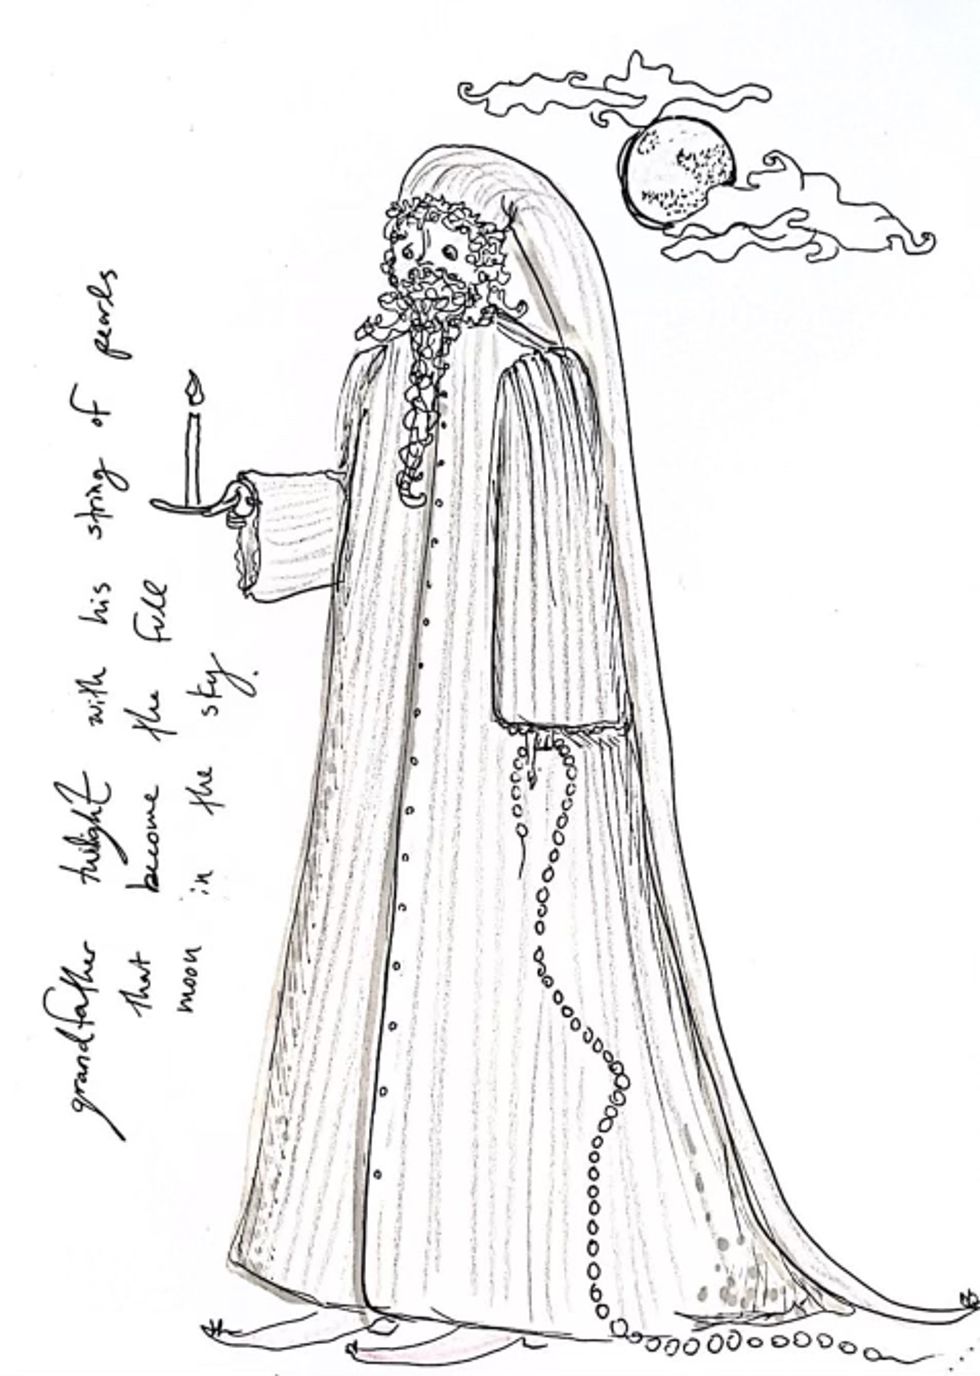 grandfather twilight with his string of pearls
that become the full
moon in the sky.